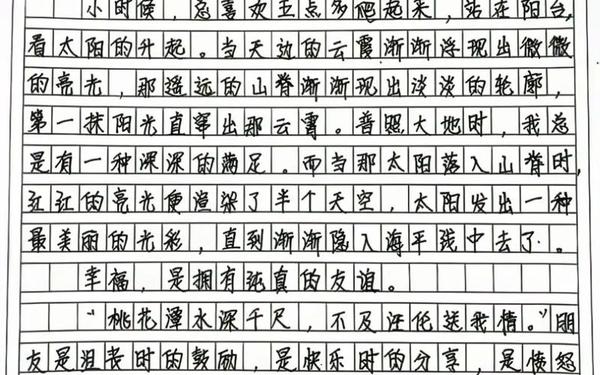 小时候，总喜欢五点多爬起来，站在阳台，
看太阳的升起。当天边的云霞渐渐浮现出微微
的亮光，那遥远的山脊渐渐现出淡淡的轮廓，
第一抹阳光直窜出那云霄。普照大地时，我总
是有一种深深的满足。而当那太阳落入山脊时，
红红的亮光便渲染了半个天空，太阳发出一种
最美丽的光彩，直到渐渐隐入海平线中去了。
幸福，是拥有纯真的友谊。
“桃花潭水深千尺，不及汪伦送我情。”朋
友是沮丧时的鼓励，是快乐时的分享，是愤怒